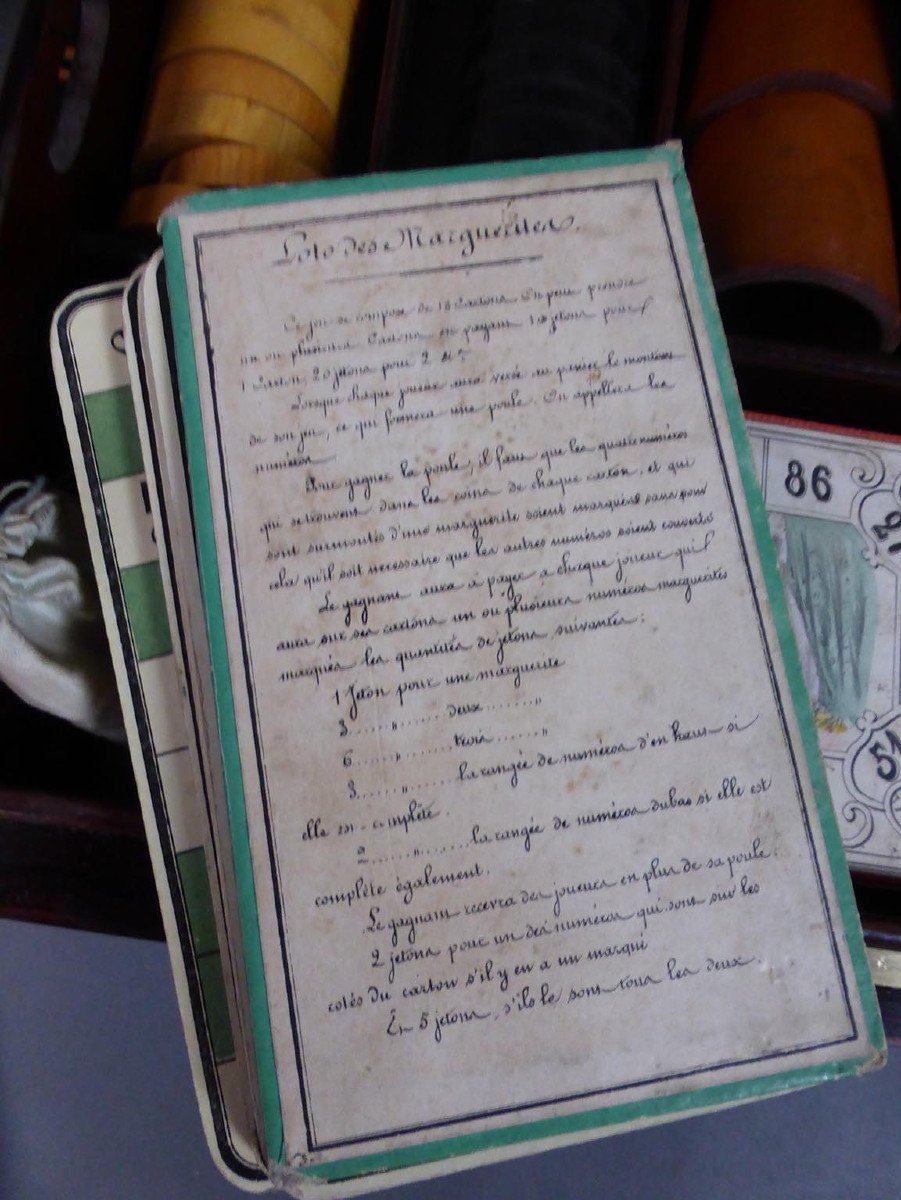 Loto des Marguerites.
Ce jeu se compose de 18 Cartons. On peut prendre
un ou plusieurs Cartons en payant jetons pour
1 Carton, 20 jetons pour 2 &
Lorsque chaque joueur aura versé au panier le montant
de son jeu, ce qui formera une poule. On appellera les
numéros.
Pour gagner la poule, il faut que les quatre numéros
qui se trouvent dans les coins de chaque carton, et qui
sont surmontés d'une marguerite soient marqués sans pour
cela qu'il soit nécessaire que les autres numéros soient couverts
Le gagnant aura à payer à chaque joueur qui
aura sur ses cartons un ou plusieurs numéros marguerités
marqués les quantités de jetons suivantes:
1 Jeton pour une marguerite
3......"......deux......"
6......"......trois......"
3......"......la rangée de numéros d'en haut si
elle est complète.
2......"......la rangée de numéros du bas si elle est
complète également.
Le gagnant recevra des joueurs en plus de sa poule.
2 jetons pour un des numéros qui sont sur les
cotés du carton s'il y en a un marqué
Et 5 jetons, s'ils le sont tous les deux.
86
51